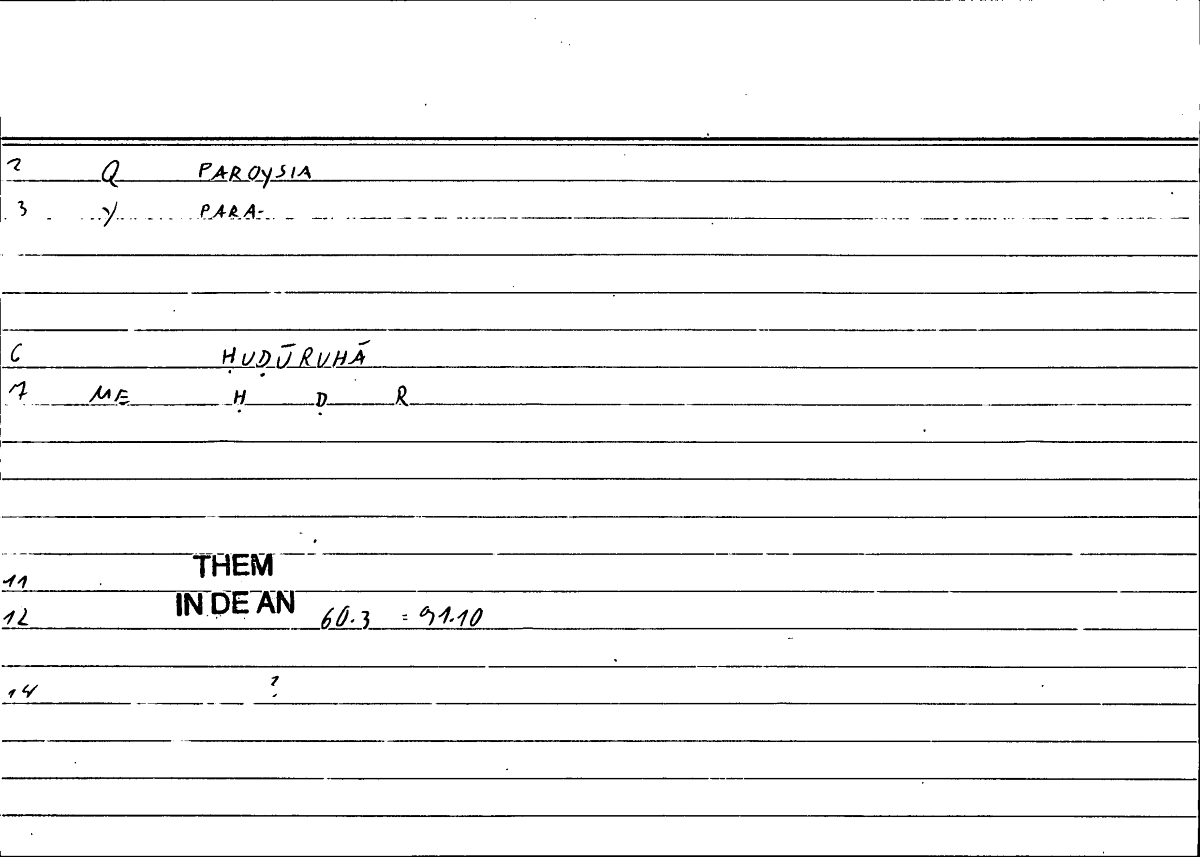 2 Q PAROYSIA
3 Y PARA-
6 ḤUḌŪRUHĀ
7 ME Ḥ Ḍ R
THEM
11
IN DE AN
12 60.3 = 91.10
14 ?